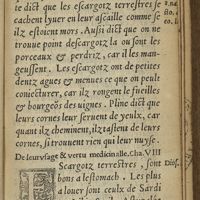 ie dict que les escargotz terrestres se
cachent lyuer en leur ascaille comme se
ilz estoient mors. Aussi dict que on ne
trouue point descargotz la ou sont les
porceaux & perdriz, car il les man-
geussent. Les escargotz ont de petites
dentz agues & menues ce que on peut
coniecturer, car ilz rongent le fueilles
& bourgeõs des vignes. Pline dict que
leurs cornes leur seruent de yeulx, car
quant ilz cheminent, ilz tastent de leurs
cornes, si trouuent rien qui leur nuyse.
De leur vsage & vertu medicinalle. Cha. VIII
Escargotz terrestres, sont
bons a lestomach. Les plus
a louer sont ceulx de Sardi
2. na.
sto.
co. l.
Dios.